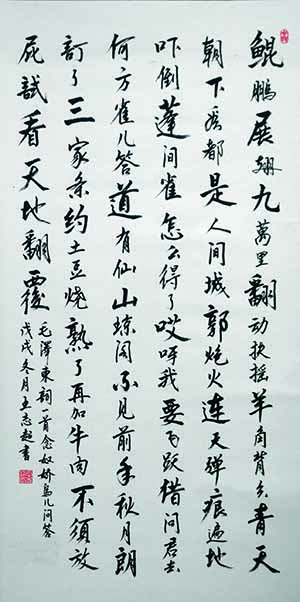 鲲鹏展翅九萬里翻动扶摇羊角背负青天
朝下看都是人间城郭炮火连天弹痕遍地
吓倒蓬间雀怎么得了哎呀我要飞跃借问君去
何方雀儿答道有仙山琼阁不见前年秋月朗
訂了三家条约土豆烧熟了再加牛肉不须放
屁試看天地翻覆
毛澤東詞一首念奴娇鸟儿问答
戊戌冬月王志超書